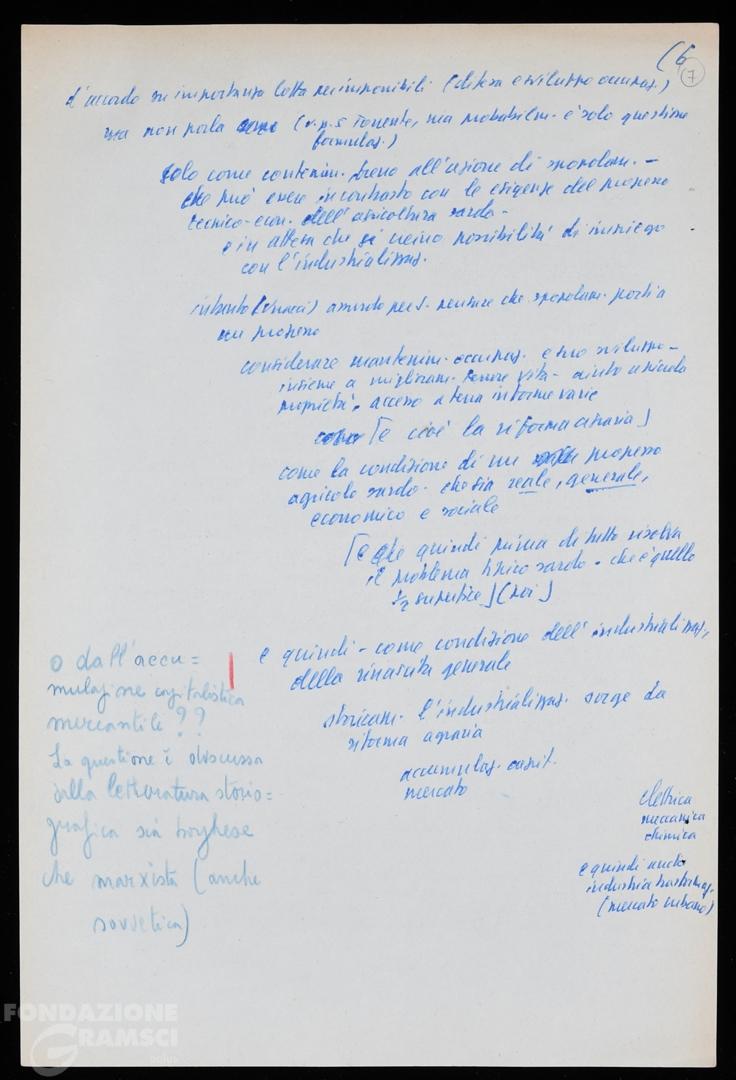 (6
7
d'accordo su importanza lotta per imponibili (difesa e sviluppo occupaz.)
ma non parla (v. p. 5 , ma probabilm. è solo questione
formulaz.)
solo come contenim. freno all'azione di spopolam. -
che può essere in contrasto con le esigenze del progresso
tecnico-econ. dell'agricoltura sarda -
e in attesa che si creino possibilità di impiego
con l'industrializzaz.
intanto assurdo per S. pensare che spopolam. porti a
un progresso
considerare mantenim. occupaz. e suo sviluppo -
insieme a miglioram. tenore vita - aiuto a piccola
proprietà, accesso a terra in forme varie
[e cioè la riforma agraria]
come la condizione di un progresso
agricolo sardo - che sia reale, generale,
economico e sociale
[e che quindi prima di tutto risolva
il problema tipico sardo - che è quello
½ superfice] (poi]
e quindi - come condizione dell'industrializzaz.,
della rinascita generale
storicam. l'industrializzaz. sorge da
riforma agraria
accumulaz. capit.
mercato
elettrica
meccanica
chimica
e quindi anche
industria trasformaz.
(mercato urbano)
o dall'accu=
mulazione capitalistica
mercantile ??
La questione è discussa
dalla letteratura storio=
grafica sia borghese
che marxista (anche
sovietica)
FONDAZIONE
GRAMSCI
onlus